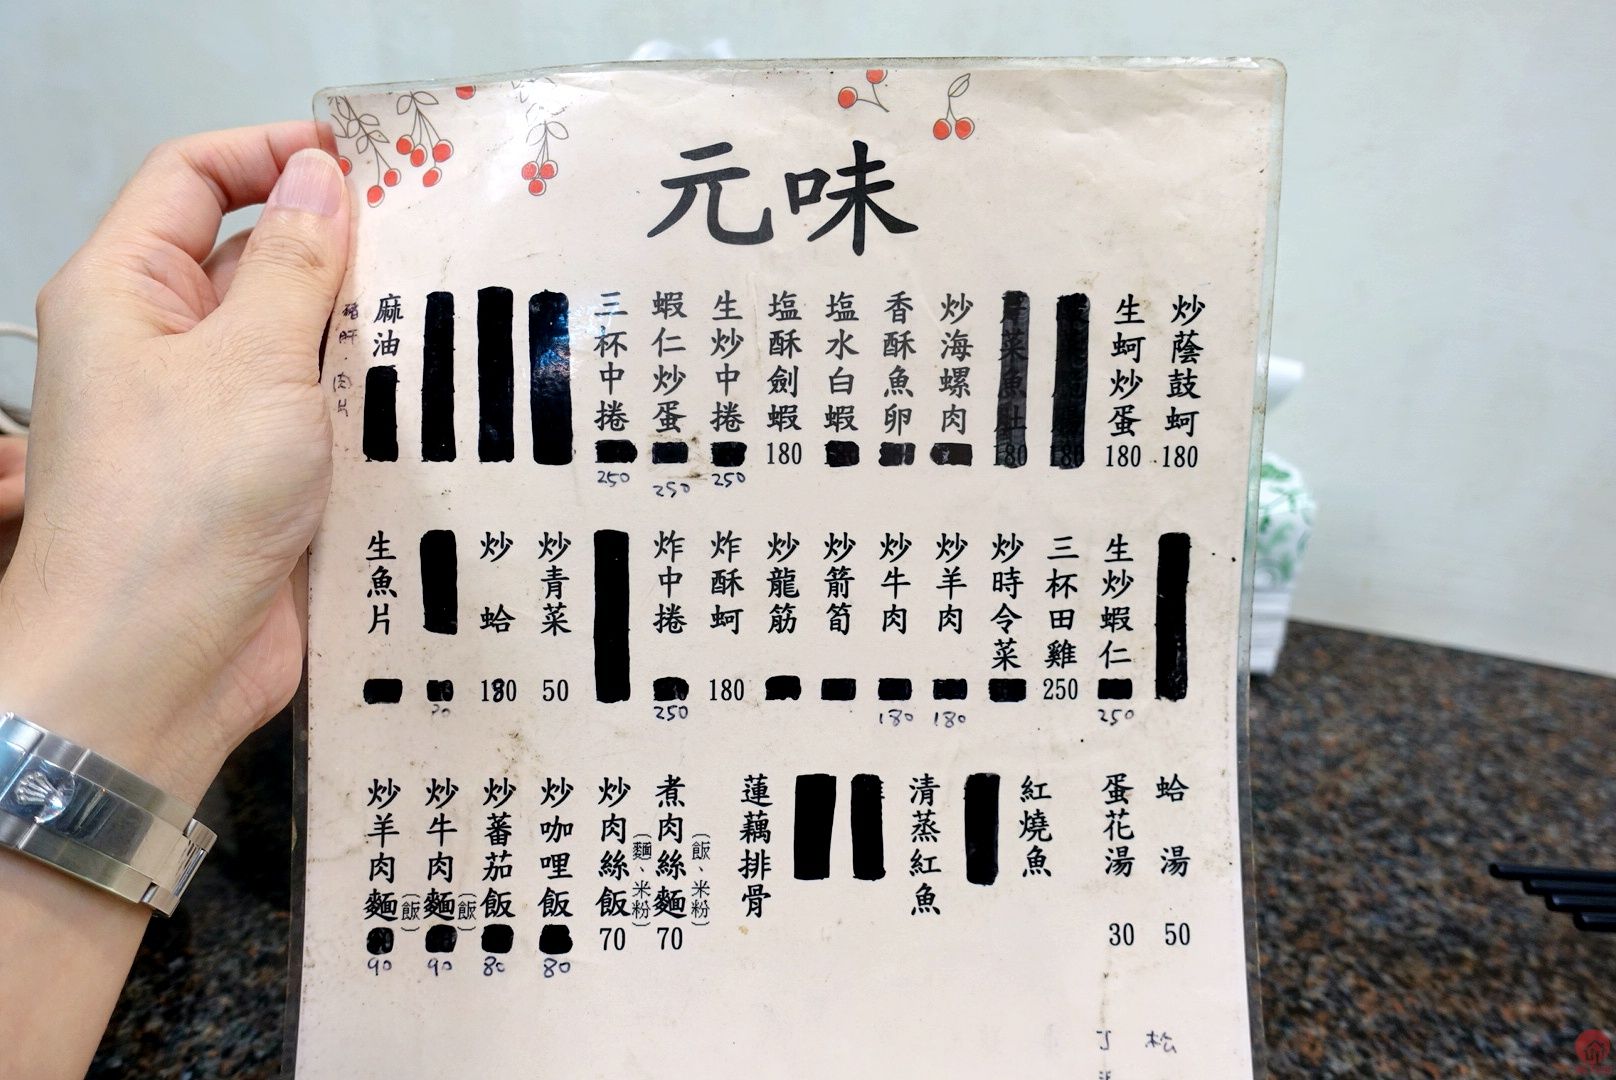 元味
炒蔭鼓蚵 180
生蚵炒蛋 180
炒海螺肉
香酥魚卵
塩水白蝦
塩酥劍蝦 180
生炒中捲 250
蝦仁炒蛋 250
三杯中捲 250
麻油
豬肝．肉片
生炒蝦仁 250
三杯田雞 250
炒時令菜
炒羊肉 180
炒牛肉 180
炒箭筍
炒龍筋
炸酥蚵 180
炸中捲 250
炒青菜 50
炒蛤
生魚片
蛤湯 50
蛋花湯 30
紅燒魚
清蒸紅魚
蓮藕排骨
煮肉絲麵（飯、米粉） 70
炒肉絲飯（麵、米粉） 70
炒咖哩飯 80
炒蕃茄飯 80
炒牛肉麵（飯） 90
炒羊肉麵（飯） 90
松